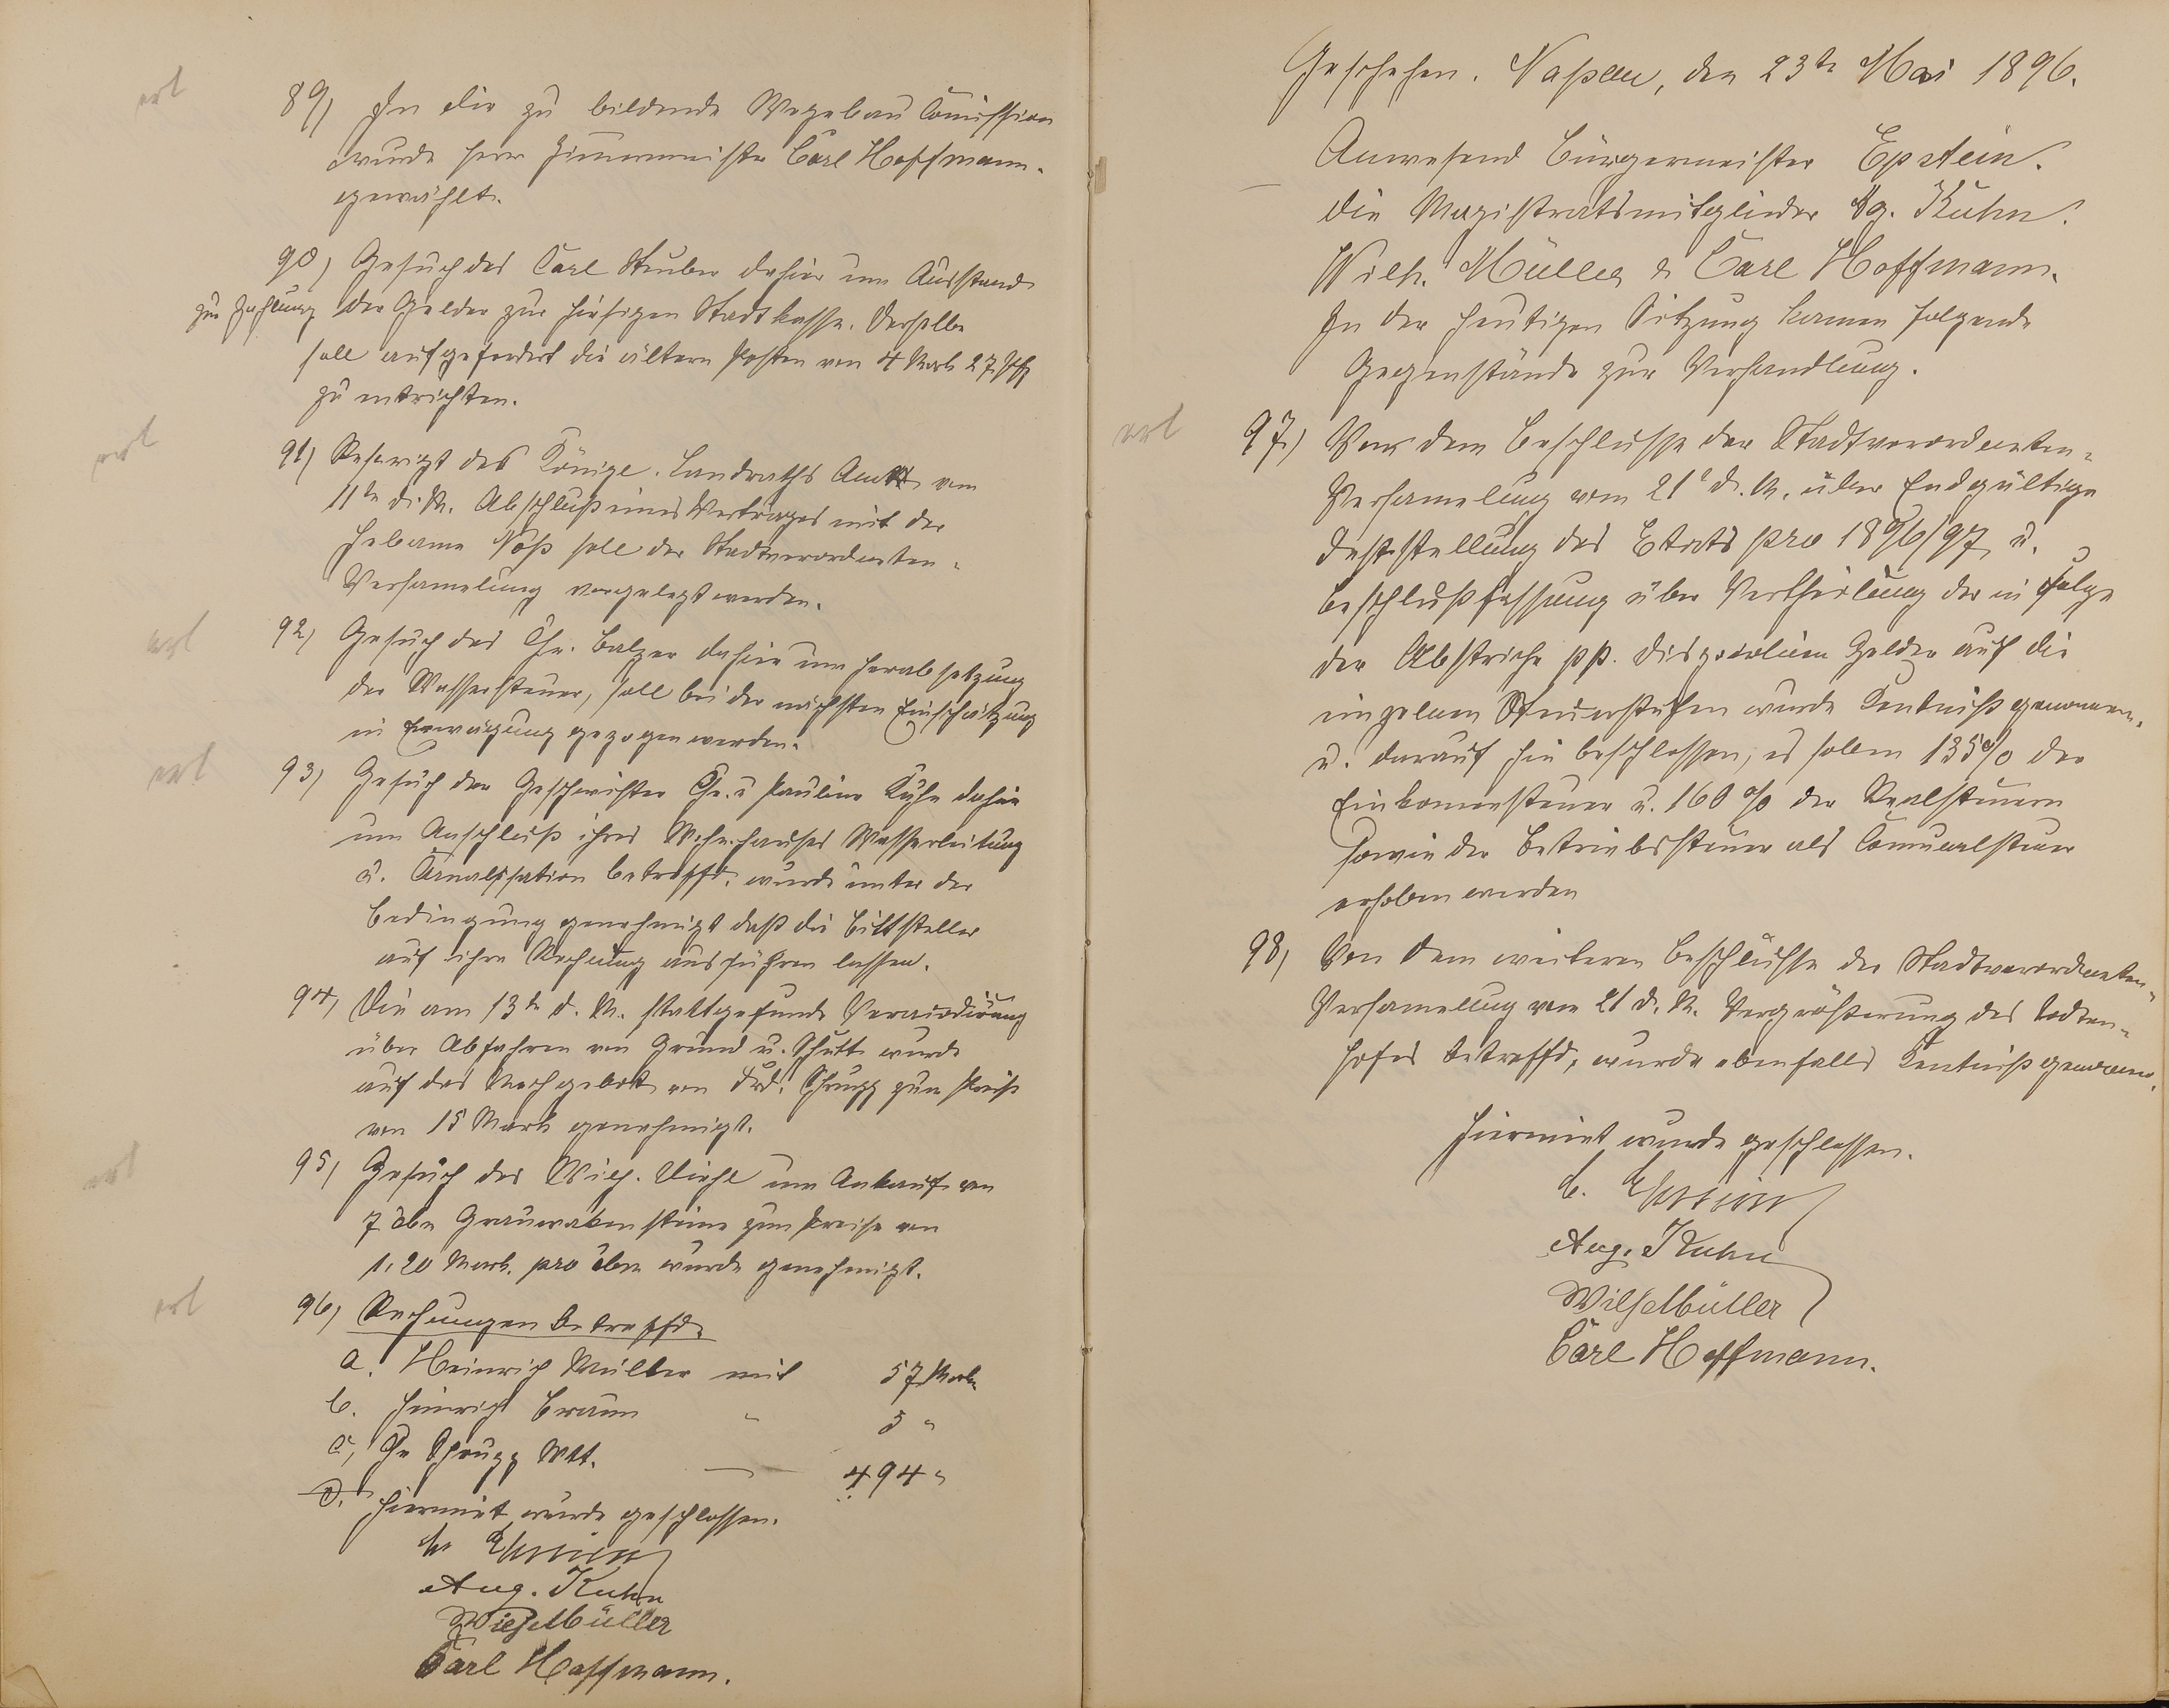 erl
89) In die zu bildende Wegebau Comission
wurde Herr Zimmermeister Carl Hoffmann
gewählt.
90) Gesuch des Carl Stuber dahier um Ausstand
zur Zahlung der Gelder zur hiesigen Stadtkasse. Derselbe
soll aufgefordert die ältern Posten von 4 Mark 27 Pfg
zu entrichten.
erl
91) Rescript des Königl. Landraths Amts vom
11ten d. M. Abschluß eines Vertrages mit der
Hebame Nöß soll der Stadtverordneten-
Versamelung vorgelegt werden.
erl
92) Gesuch des Chr. Balzer dahier um Herabsetzung
der Wassersteuer, soll bei der nächsten Einschätzung
in Erwägung gezogen werden.
erl
93) Gesuch der Geschwister Chr. u Pauline Kuhn dahier
um Anschluß ihres Wohnhauses Wasserleitung
u. Canalisation betreffd. wurde unter der
Bedingung genehmigt daß die Bittsteller
auf ihre Rechnung ausführen lassen.
94) Die am 13ten d. M. stattgefunde
über Abfahren von Grund u. Schutt wurde
auf das Nachgebott von Frd. Schrupp zum Preiße
von 15 Mark genehmigt.
erl
95) Gesuch des Wilh. Diehl um Ankauf von
7 cbm Grauwakensteine zum Preise von
1,20 Mark. pro cbm wurde genehmigt.
erl
96) Rechnungen Betreffd.
a. Heinrich Müller mit 57 Mark
b. Heinrich Braun " 5 "
c, Chr Schrupp Wtt. — 494 "
d. Hiermit wurde geschlossen.
Epstein
Aug. Kuhn
Wilh Müller
Carl Hoffmann.
Geschehen. Naßau, den 23te Mai 1896.
Anwesend Bürgermeister Epstein.
die Magistratsmitglieder Ag. Kuhn.
Wilh. Müller & Carl Hoffmann.
In der heutigen Sitzung kamen folgende
Gegenstände zur Verhandlung.
erl
97.) Von dem Beschlusse der Stadtverordneten-
Versamelung vom 21t d. M. über Endgültige
Feststellung des Etats pro 1896/97 u.
Beschlußfassung über Vertheilung der in Folge
der Abstriche pp. Gelder auf die
einzelnen Steuerstufen wurde Kentniß genomen,
u. darauf hin beschlossen, es sollen 135% der
Einkomensteuer u. 160 % der Realsteuern
sowie der Betriebssteuer als Comunalsteuer
erhoben werden
98) Von dem weiteren Beschlusse der Stadtverordneten-
Versamelung vom 21 d. M. Vergrößerung des Todten-
hofes betreffd, wurde ebenfalls Kentniß genomen.
Hiermit wurde geschlossen.
Epstein
Aug. Kuhn
Wilh Müller
Carl Hoffmann.